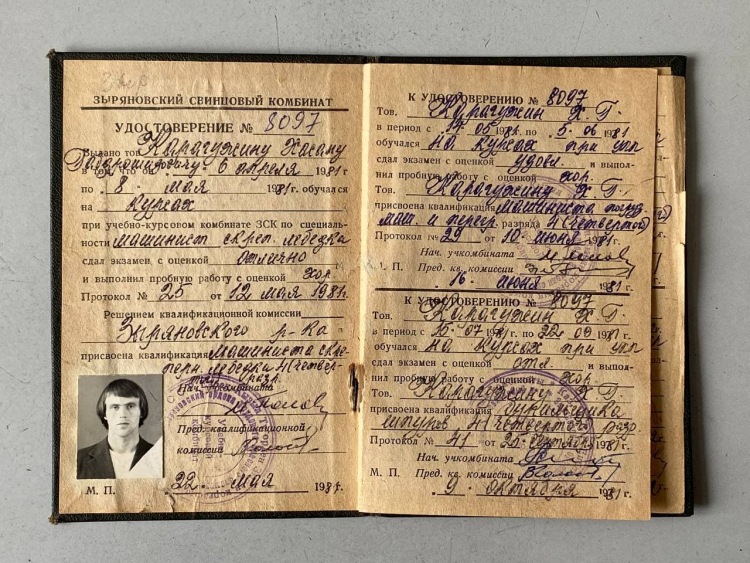 ЗЫРЯНОВСКИЙ СВИНЦОВЫЙ КОМБИНАТ
УДОСТОВЕРЕНИЕ № 8097
Выдано тов. Карагужину Хасану
в том, что он с 6 апреля 1981 г.
по 8 мая 1981 г. обучался
на курсах
при учебно-курсовом комбинате ЗСК по специаль-
ности машинист скреп. лебедка
сдал экзамен с оценкой отлично
и выполнил пробную работу с оценкой хор.
Протокол № 25 от 12 мая 1981 г.
Решением квалификационной комиссии
Зыряновского р-ка
присвоена квалификация машиниста скре-
перн. лебедка 4 (четвер-
того) разр.
Нач. учкомбината
Пред. квалификационной
комиссии
22 мая 1981 г.
М. П.
К УДОСТОВЕРЕНИЮ № 8097
Тов. Карагужин Х. Г.
в период с 14.05 1981 г. по 5.06 1981
обучался на курсах при укп
сдал экзамен с оценкой удовл. и выпол-
нил пробную работу с оценкой хор.
Тов. Карагужину Х. Г.
присвоена квалификация машиниста погруз
маш. и перегр. разряда 4 (четвертого)
Протокол № 29 от 10 июня 1981 г.
Нач. учкомбината
М. П. Пред. кв. комиссии
16 июня 1981 г.
К УДОСТОВЕРЕНИЮ № 8097
Тов. Карагужин Х. Г.
в период с 15.07 1981 г. по 22.09 1981 г.
обучался на курсах при укп
сдал экзамен с оценкой отл. и выпол-
нил пробную работу с оценкой хор.
Тов. Карагужину Х. Г.
присвоена квалификация бурильщика
шпуров 4 (четвертого) разр.
Протокол № 41 от 22 сентября 1981 г.
Нач. учкомбината
М. П. Пред. кв. комиссии
9 октября 1981 г.